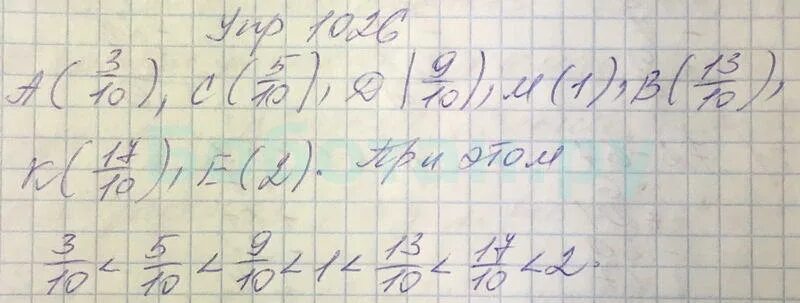 Упр 1026
А(3/10), С(5/10), Д(9/10), М(1), В(13/10),
К(17/10), Е(2). При этом
3/10 < 5/10 < 9/10 < 1 < 13/10 < 17/10 < 2.